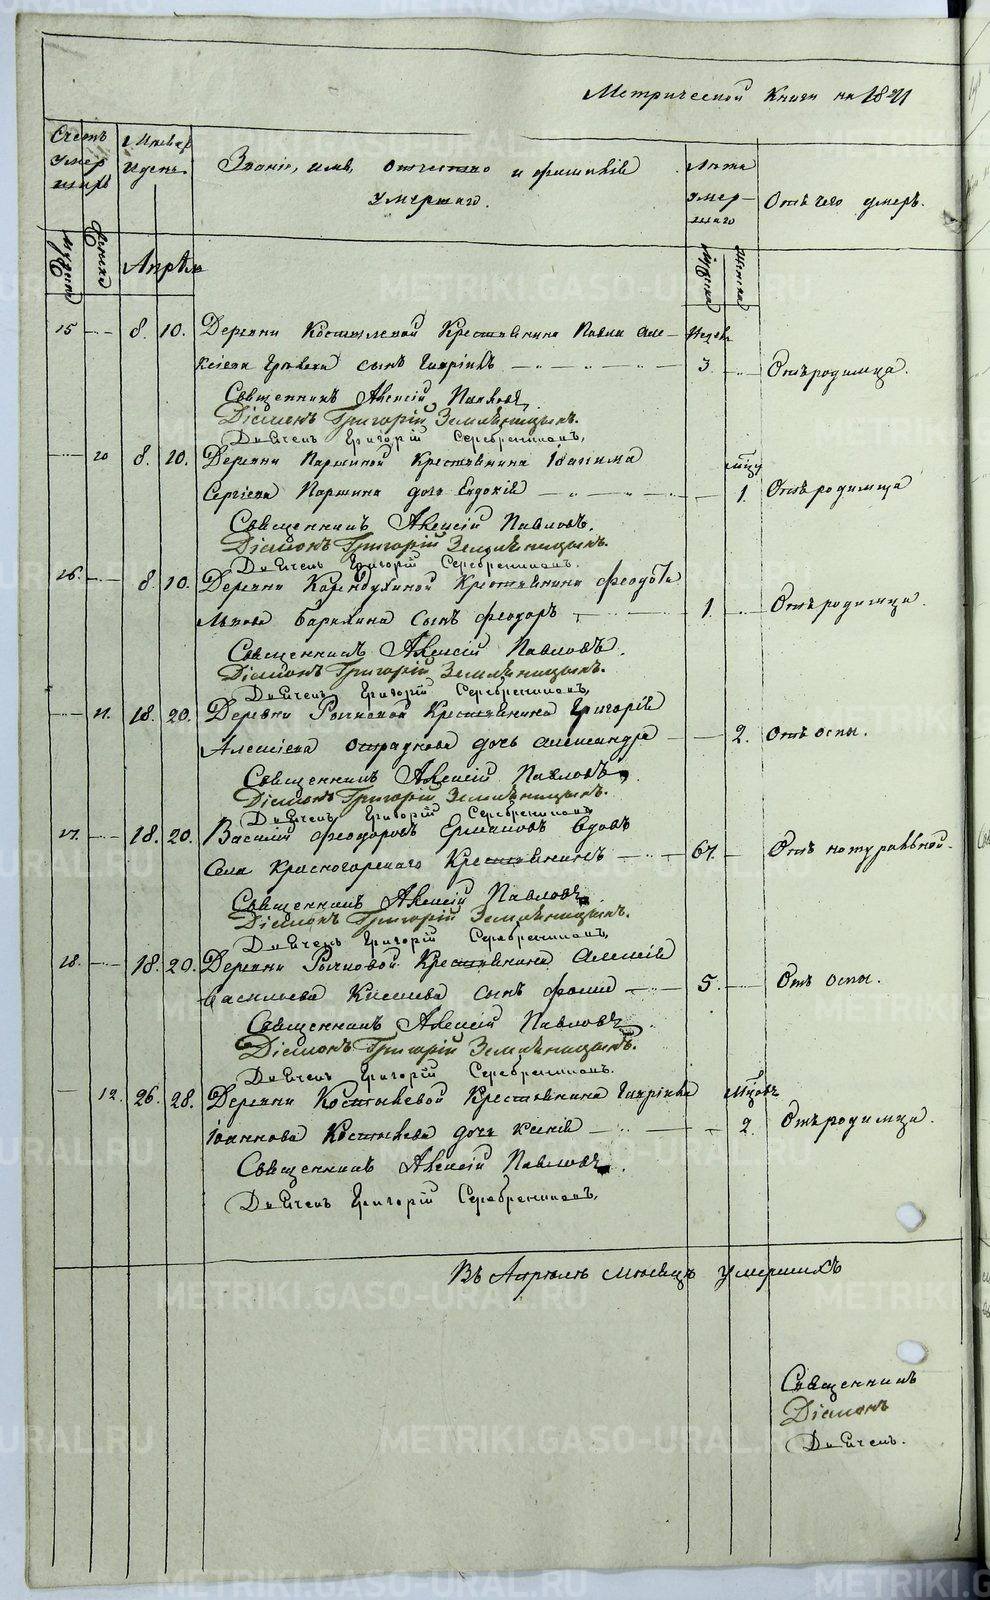 Метрической книги на 1841
Счетъ умершихъ
Мѣсяц и день
Званіе, имя, отчество и фамилія умершаго.
Лѣта умершаго
Отъ чего умеръ.
Апрѣль
15 8. 10. Деревни Костылевой Крестьянина Павла Але-
ксіева сынъ Гаврiилъ 3 Отъ родимца.
Священникъ Алексій Павловъ,
Діаконъ Григорій Земляницынъ.
Дьячекъ Григорій Серебренниковъ,
10 8. 10. Деревни Паршиной Крестьянина Іоакима
Сергіева Паршина дочь Евдокія 1. Отъ родимца
Священникъ Алексій Павловъ.
Діаконъ Григорій Земляницынъ.
Дьячекъ Григорій Серебренниковъ.
16. 8 10. Деревни Крестьянина Феодота
сынъ Феодоръ 1. Отъ родимца.
Священникъ Алексій Павловъ.
Діаконъ Григорій Земляницынъ.
Дьячекъ Григорій Серебренниковъ,
11. 18. 20. Деревни Рычковой Крестьянина Григорія
Алексіева дочь Александра 2. Отъ оспы.
Священникъ Алексій Павловъ,
Діаконъ Григорій Земляницынъ.
Дьячекъ Григорій Серебренниковъ
17. 18. 20. Василій Феодоровъ Ермаковъ вдовъ
Села Красногорскаго Крестьянинъ 67. Отъ натуральной
Священникъ Алексій Павловъ,
Діаконъ Григорій Земляницынъ.
Дьячекъ Григорій Серебренниковъ,
18. 18. 20. Деревни Рычковой Крестьянина Алексія
Васильева сынъ Фома 5. Отъ оспы.
Священникъ Алексій Павловъ
Діаконъ Григорій Земляницынъ.
Дьячекъ Григорій Серебренниковъ.
12. 26. 28. Деревни Костылевой Крестьянина Гавріила мѣсяцовъ
Іоаннова Костылева дочь Ксенія 2. Отъ родимца.
Священникъ Алексій Павловъ.
Дьячекъ Григорій Серебренниковъ.
Въ Апрѣлѣ мѣсяцѣ умершихъ
Священникъ
Діаконъ
Дьячекъ.
METRIKI.GASO-URAL.RU